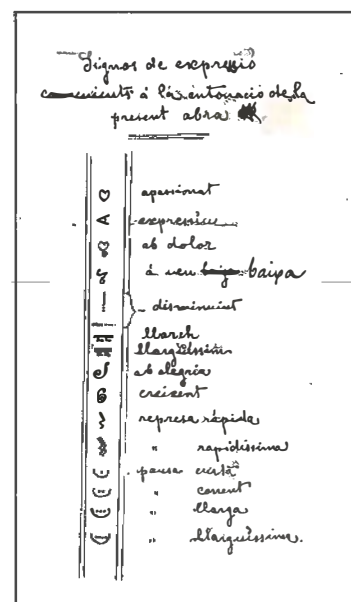 Signos de expressio
convenients á la entonació de la
present obra
apassionat
expressiu
ab dolor
á veu baixa baixa
disminuint
llarch
llarguissim
ab alegria
creixent
represa rápida
" rapidissima
pausa curta
" corrent
" llarga
" llarguissima.